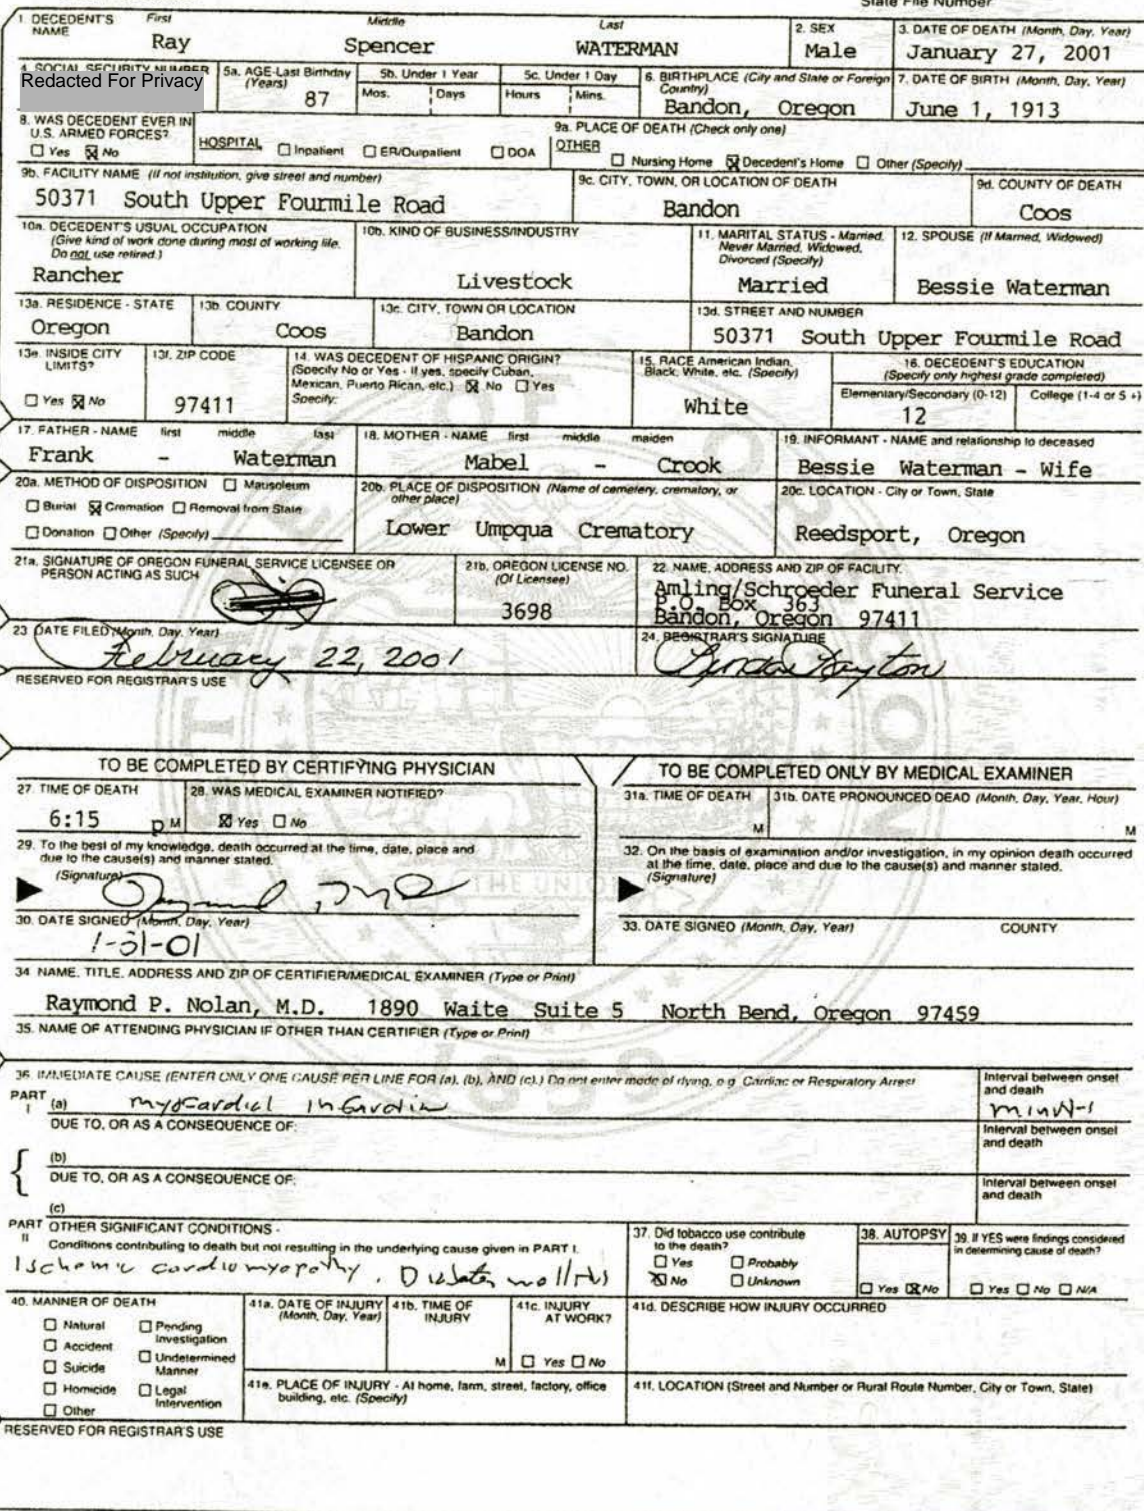 State File Number
1. DECEDENT'S NAME First Middle Last
Ray Spencer WATERMAN
2. SEX
Male
3. DATE OF DEATH (Month, Day, Year)
January 27, 2001
4. SOCIAL SECURITY NUMBER
Redacted For Privacy
5a. AGE-Last Birthday (Years)
87
5b. Under 1 Year
Mos. Days
5c. Under 1 Day
Hours Mins.
6. BIRTHPLACE (City and State or Foreign Country)
Bandon, Oregon
7. DATE OF BIRTH (Month, Day, Year)
June 1, 1913
8. WAS DECEDENT EVER IN U.S. ARMED FORCES?
☐ Yes ☒ No
9a. PLACE OF DEATH (Check only one)
HOSPITAL ☐ Inpatient ☐ ER/Outpatient ☐ DOA
OTHER ☐ Nursing Home ☒ Decedent's Home ☐ Other (Specify)
9b. FACILITY NAME (If not institution, give street and number)
50371 South Upper Fourmile Road
9c. CITY, TOWN, OR LOCATION OF DEATH
Bandon
9d. COUNTY OF DEATH
Coos
10a. DECEDENT'S USUAL OCCUPATION
(Give kind of work done during most of working life. Do not use retired.)
Rancher
10b. KIND OF BUSINESS/INDUSTRY
Livestock
11. MARITAL STATUS - Married, Never Married, Widowed, Divorced (Specify)
Married
12. SPOUSE (If Married, Widowed)
Bessie Waterman
13a. RESIDENCE - STATE
Oregon
13b. COUNTY
Coos
13c. CITY, TOWN OR LOCATION
Bandon
13d. STREET AND NUMBER
50371 South Upper Fourmile Road
13e. INSIDE CITY LIMITS?
☐ Yes ☒ No
13f. ZIP CODE
97411
14. WAS DECEDENT OF HISPANIC ORIGIN?
(Specify No or Yes - If yes, specify Cuban, Mexican, Puerto Rican, etc.) ☒ No ☐ Yes
Specify:
15. RACE American Indian, Black, White, etc. (Specify)
White
16. DECEDENT'S EDUCATION
(Specify only highest grade completed)
Elementary/Secondary (0-12) College (1-4 or 5 +)
12
17. FATHER - NAME first middle last
Frank - Waterman
18. MOTHER - NAME first middle maiden
Mabel - Crook
19. INFORMANT - NAME and relationship to deceased
Bessie Waterman - Wife
20a. METHOD OF DISPOSITION ☐ Mausoleum
☐ Burial ☒ Cremation ☐ Removal from State
☐ Donation ☐ Other (Specify)
20b. PLACE OF DISPOSITION (Name of cemetery, crematory, or other place)
Lower Umpqua Crematory
20c. LOCATION - City or Town, State
Reedsport, Oregon
21a. SIGNATURE OF OREGON FUNERAL SERVICE LICENSEE OR PERSON ACTING AS SUCH
21b. OREGON LICENSE NO. (Of Licensee)
3698
22. NAME, ADDRESS AND ZIP OF FACILITY.
Amling/Schroeder Funeral Service
P.O. Box 363
Bandon, Oregon 97411
23 DATE FILED (Month, Day, Year)
February 22, 2001
24. REGISTRAR'S SIGNATURE
RESERVED FOR REGISTRAR'S USE
TO BE COMPLETED BY CERTIFYING PHYSICIAN
27. TIME OF DEATH
6:15 p M
28. WAS MEDICAL EXAMINER NOTIFIED?
☒ Yes ☐ No
29. To the best of my knowledge, death occurred at the time, date, place and due to the cause(s) and manner stated.
(Signature)
30. DATE SIGNED (Month, Day, Year)
1-31-01
TO BE COMPLETED ONLY BY MEDICAL EXAMINER
31a. TIME OF DEATH
M
31b. DATE PRONOUNCED DEAD (Month, Day, Year, Hour)
M
32. On the basis of examination and/or investigation, in my opinion death occurred at the time, date, place and due to the cause(s) and manner stated.
(Signature)
33. DATE SIGNED (Month, Day, Year) COUNTY
34 NAME, TITLE, ADDRESS AND ZIP OF CERTIFIER/MEDICAL EXAMINER (Type or Print)
Raymond P. Nolan, M.D. 1890 Waite Suite 5 North Bend, Oregon 97459
35. NAME OF ATTENDING PHYSICIAN IF OTHER THAN CERTIFIER (Type or Print)
36. IMMEDIATE CAUSE (ENTER ONLY ONE CAUSE PER LINE FOR (a), (b), AND (c).) Do not enter mode of dying, e.g. Cardiac or Respiratory Arrest
PART I (a) Myocardial
Interval between onset and death
DUE TO, OR AS A CONSEQUENCE OF:
(b)
Interval between onset and death
DUE TO, OR AS A CONSEQUENCE OF:
(c)
Interval between onset and death
PART II OTHER SIGNIFICANT CONDITIONS -
Conditions contributing to death but not resulting in the underlying cause given in PART I.
Ischemic cardiomyopathy, Diabetes mellitus
37. Did tobacco use contribute to the death?
☐ Yes ☐ Probably
☒ No ☐ Unknown
38. AUTOPSY
☐ Yes ☒ No
39. If YES were findings considered in determining cause of death?
☐ Yes ☐ No ☐ N/A
40. MANNER OF DEATH
☐ Natural ☐ Pending Investigation
☐ Accident ☐ Undetermined Manner
☐ Suicide
☐ Homicide ☐ Legal Intervention
☐ Other
41a. DATE OF INJURY (Month, Day, Year)
41b. TIME OF INJURY
M
41c. INJURY AT WORK?
☐ Yes ☐ No
41d. DESCRIBE HOW INJURY OCCURRED
41e. PLACE OF INJURY - At home, farm, street, factory, office building, etc. (Specify)
41f. LOCATION (Street and Number or Rural Route Number, City or Town, State)
RESERVED FOR REGISTRAR'S USE
THE UNION
1859